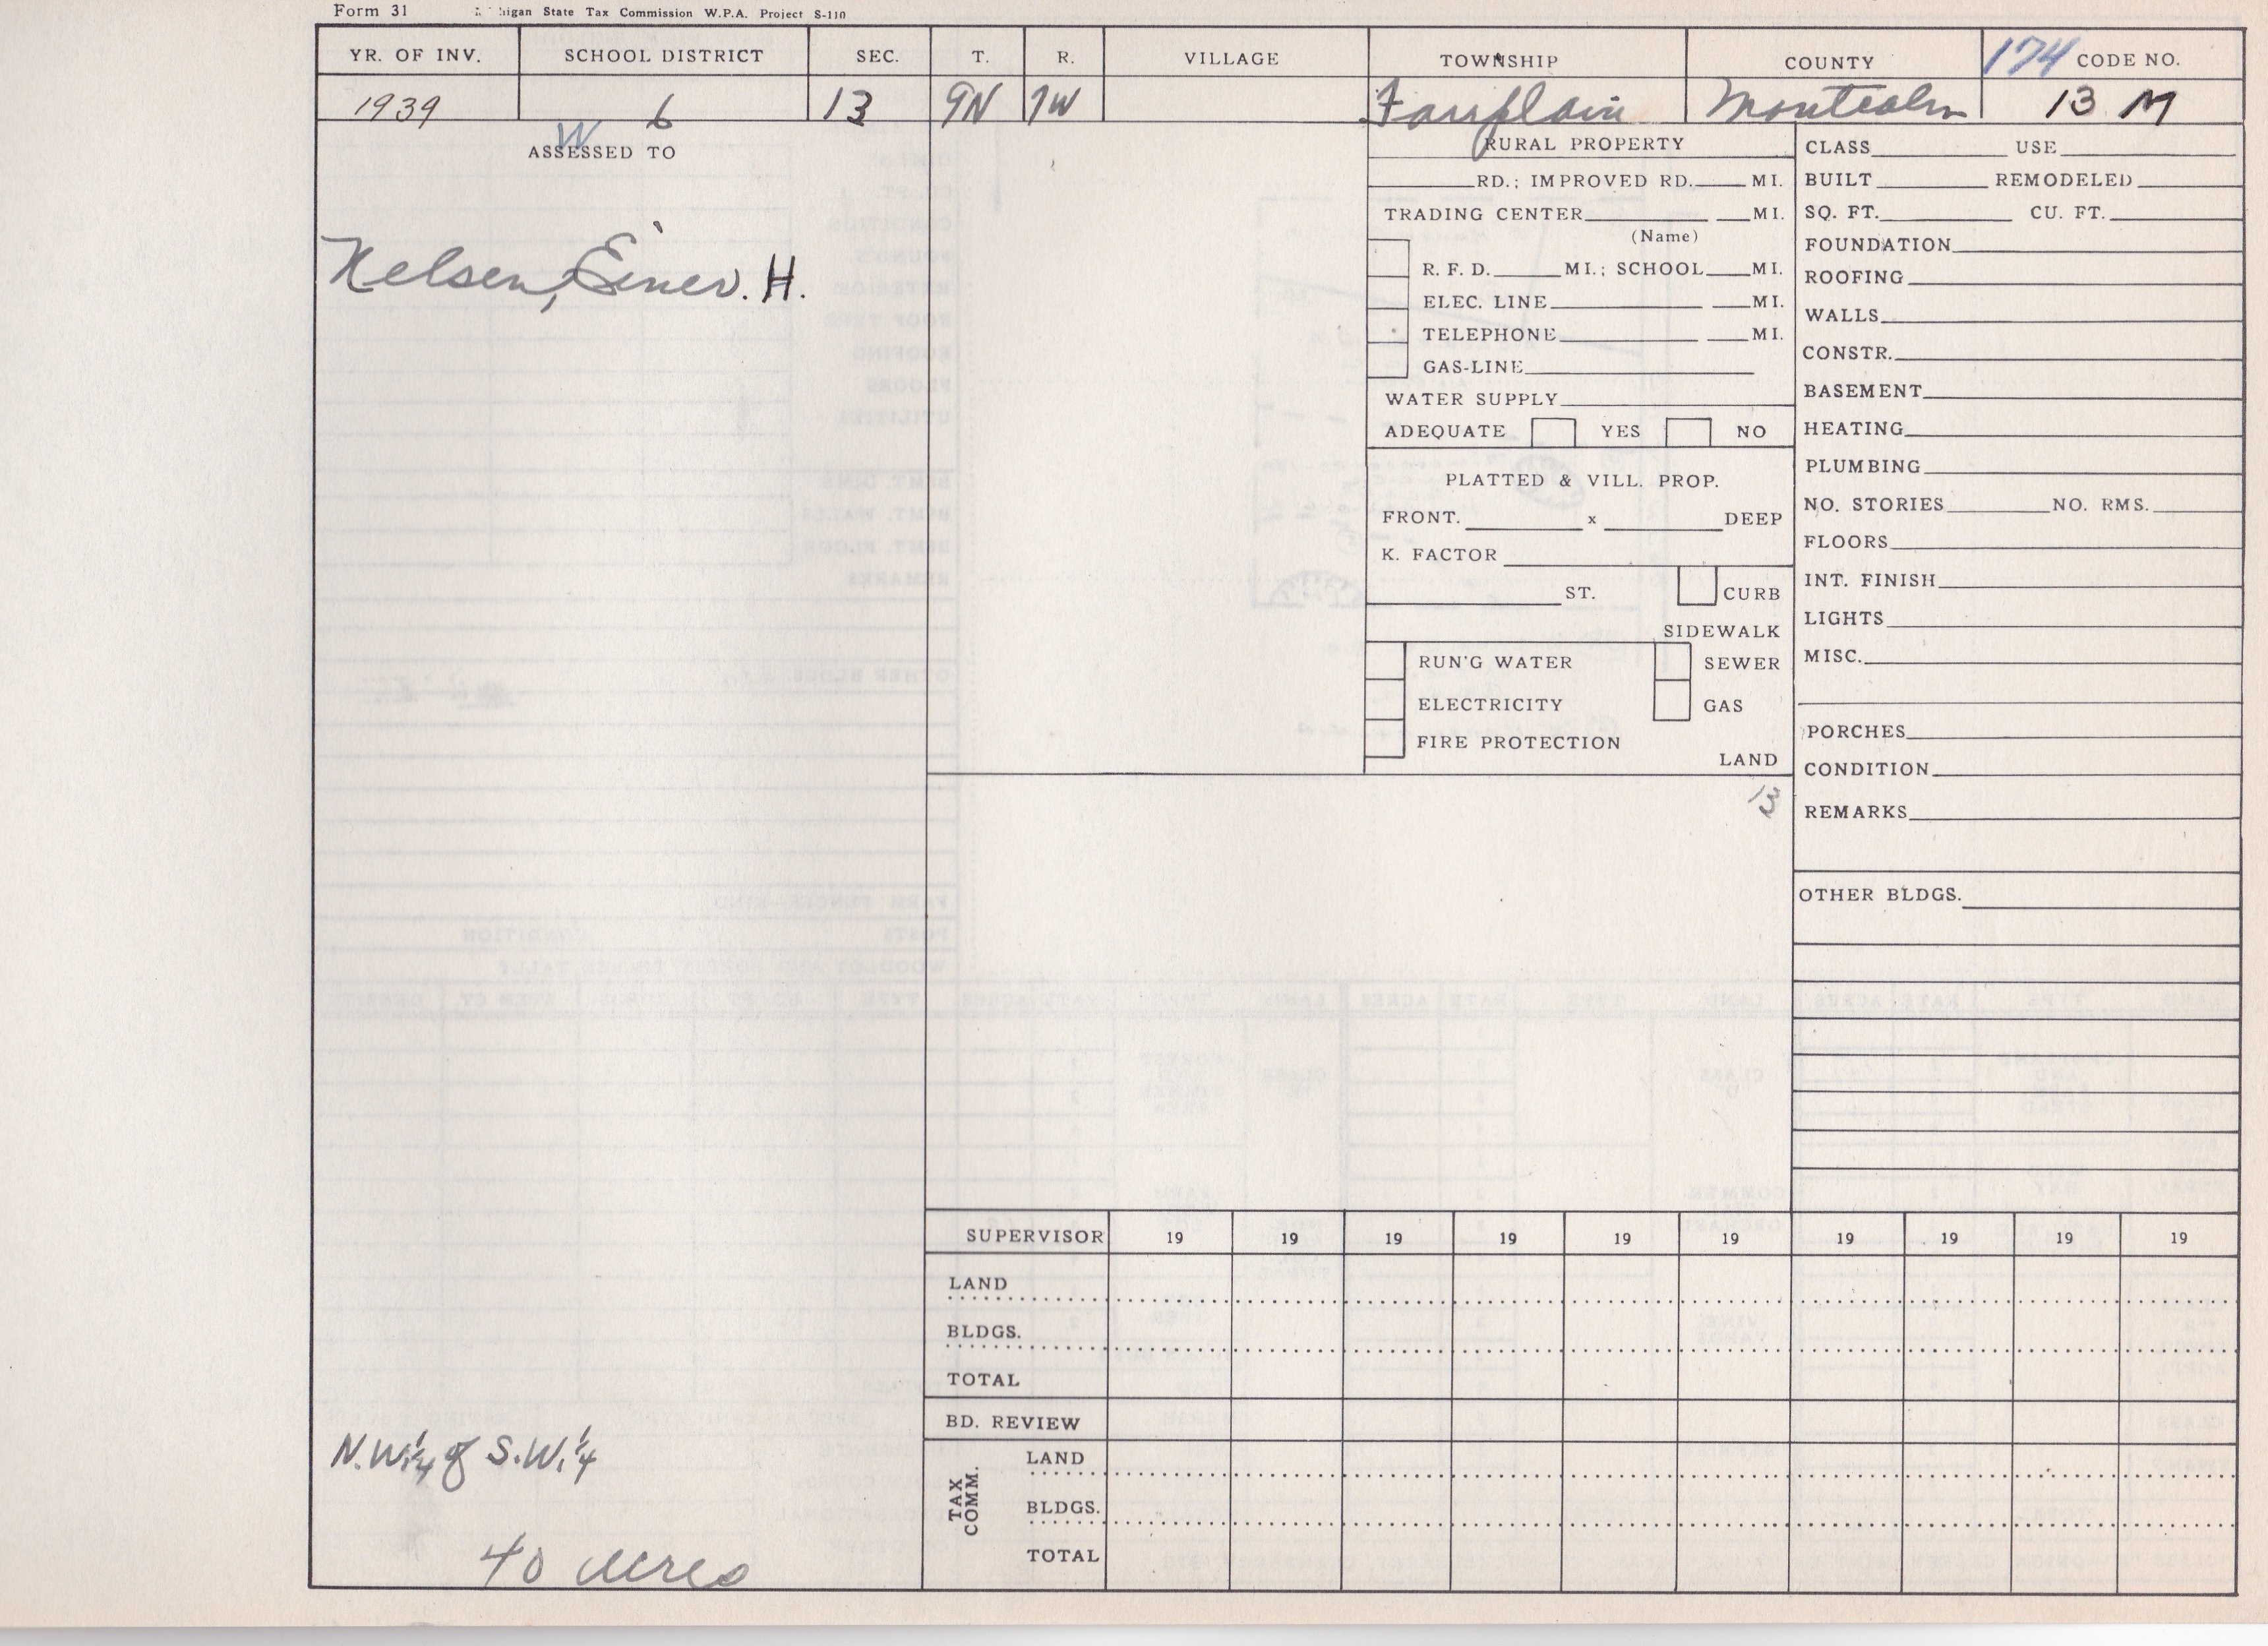 Form 31 higan State Tax Commission W.P.A. Project S-110
YR. OF INV. SCHOOL DISTRICT SEC. T. R. VILLAGE TOWNSHIP COUNTY 174 CODE NO.
1939 6 13 9N 7W Fairplain Montcalm 13 M
W
ASSESSED TO
Nelsen, Einer. H.
N.W.¼ of S.W.¼
40 acres
RURAL PROPERTY
RD.; IMPROVED RD. MI.
TRADING CENTER MI.
(Name)
R. F. D. MI.; SCHOOL MI.
ELEC. LINE MI.
TELEPHONE MI.
GAS-LINE
WATER SUPPLY
ADEQUATE YES NO
PLATTED & VILL. PROP.
FRONT. x DEEP
K. FACTOR
ST. CURB
SIDEWALK
RUN'G WATER SEWER
ELECTRICITY GAS
FIRE PROTECTION
LAND
13
CLASS USE
BUILT REMODELED
SQ. FT. CU. FT.
FOUNDATION
ROOFING
WALLS
CONSTR.
BASEMENT
HEATING
PLUMBING
NO. STORIES NO. RMS.
FLOORS
INT. FINISH
LIGHTS
MISC.
PORCHES
CONDITION
REMARKS
OTHER BLDGS.
SUPERVISOR 19 19 19 19 19 19 19 19 19 19
LAND
BLDGS.
TOTAL
BD. REVIEW
TAX COMM.
LAND
BLDGS.
TOTAL